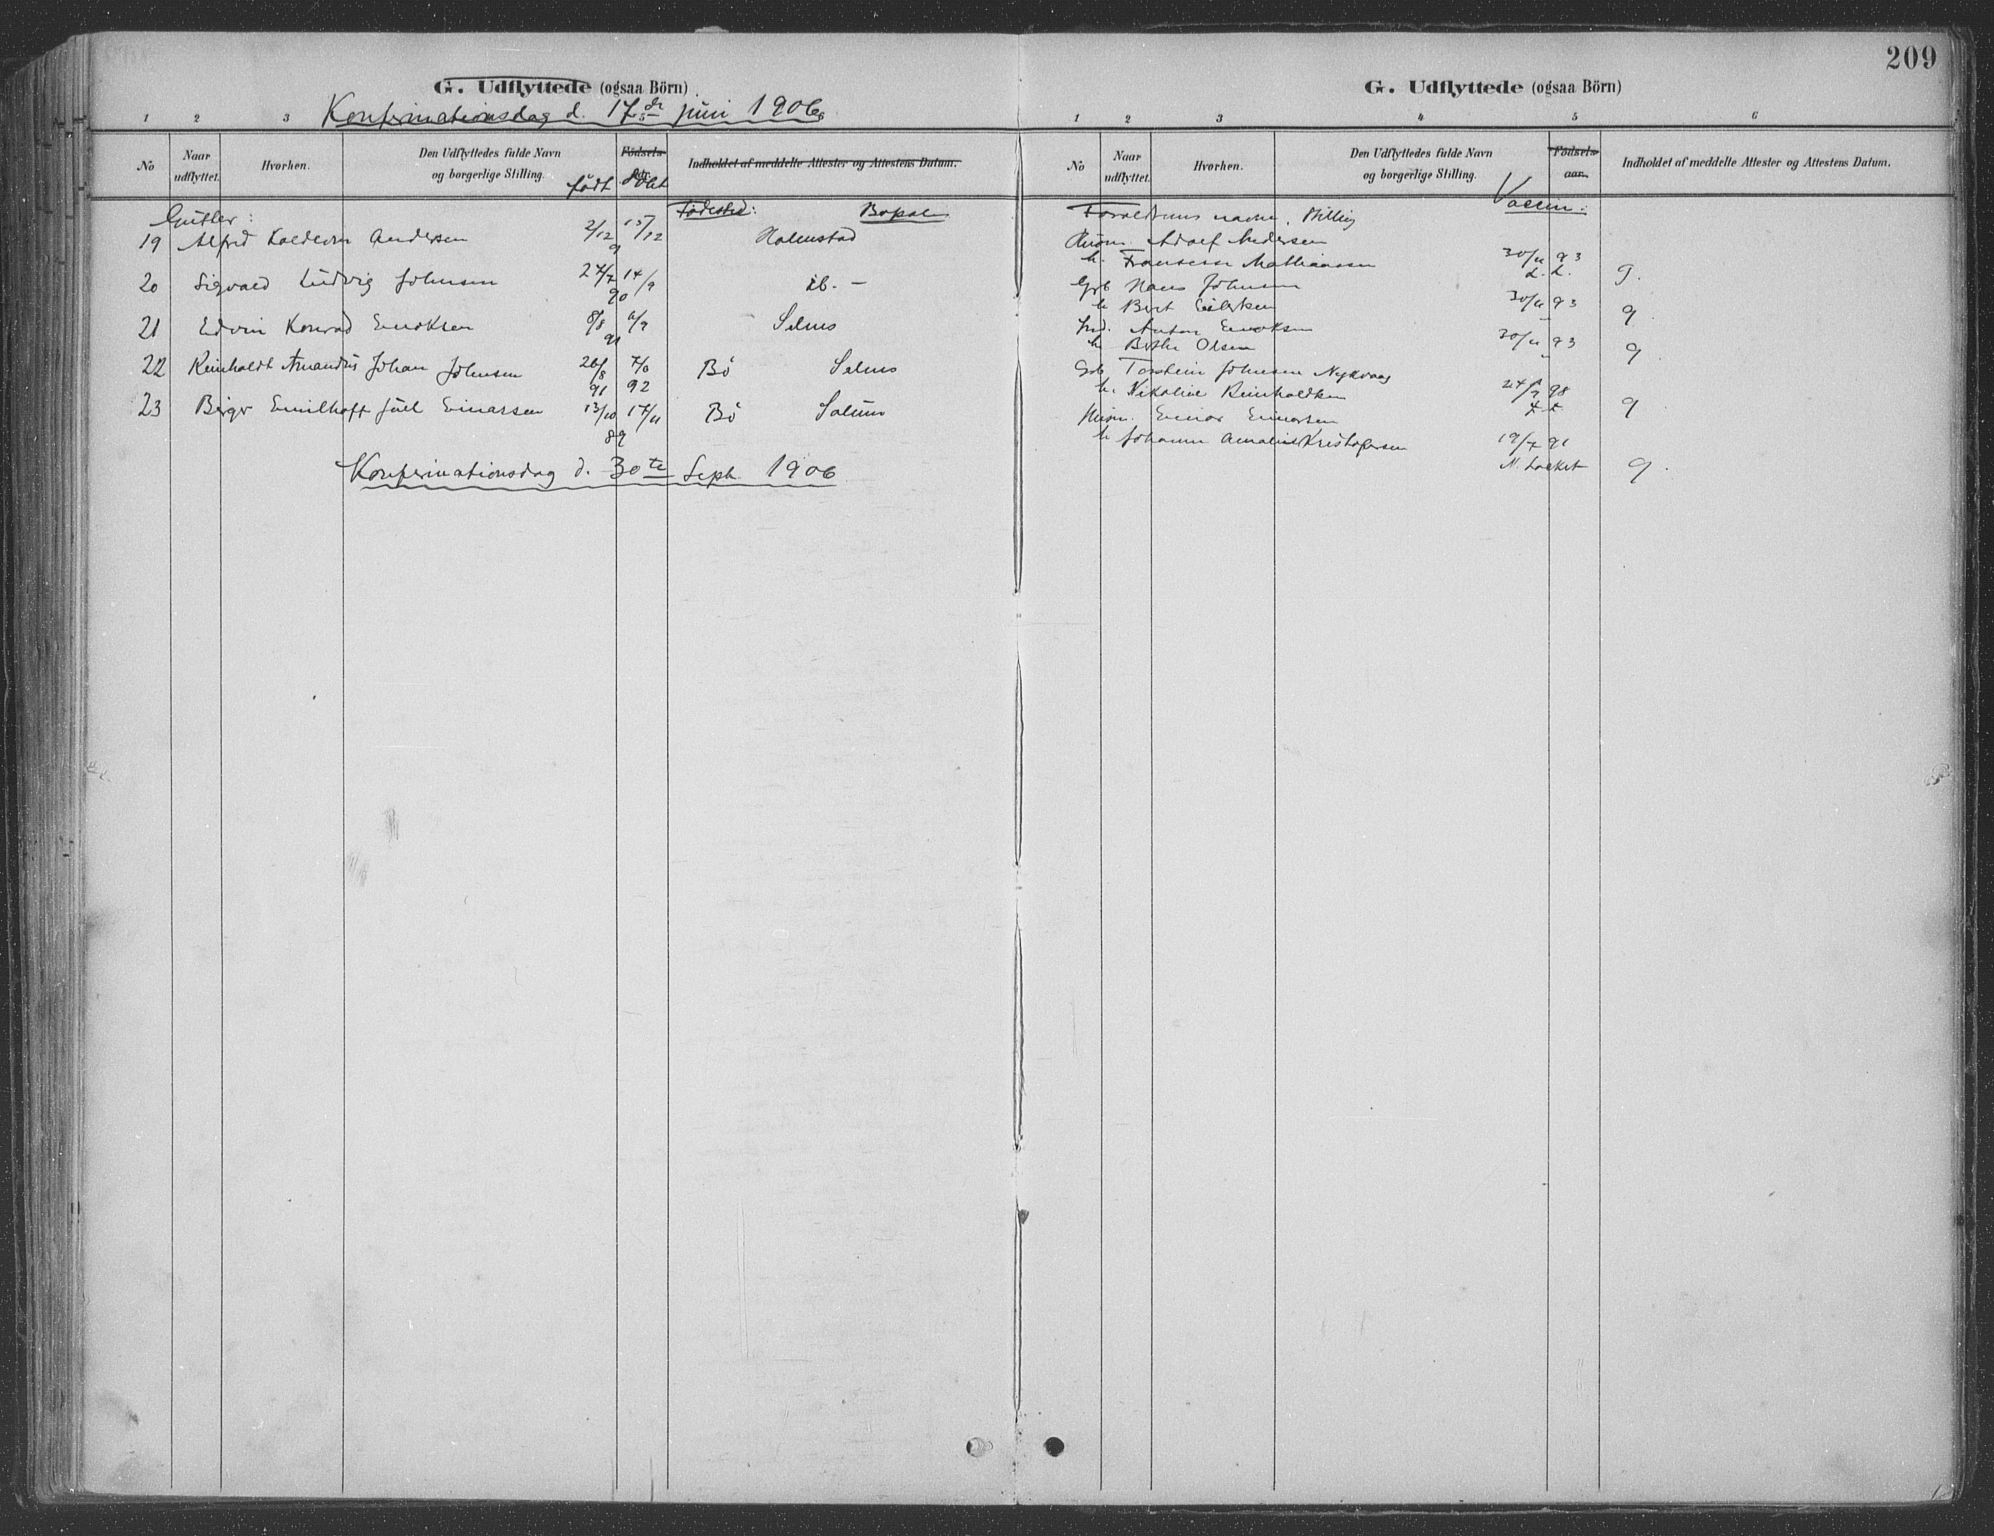 209
G. Udflyttede (ogsaa Börn)
Konfirmationsdag d. 17de juni 1906
1 2 3
No
Naar udflyttet.
Hvorhen.
Den Udflyttedes fulde Navn og borgerlige Stilling.
født
Fødsels-
døbt
Indholdet af meddelte Attester og Attestens Datum.
Gutter:
Fødested: Bopæl
19 Alfred Andersen 2/12 91 13/12 Halmstad
20 Sigvald Ludvig Johnsen 27/7 90 14/9 ib. —
21 Edvin Konrad Eriksen 8/8 91 6/9 Selnes
22 Reinholdt Amandus Johan Johnsen 26/8 91 7/8 92 Bø Selnes
23 Birger Emilhoff Juel Einarsen 13/10 89 17/11 Bø Solum
Konfirmationsdag d. 30te Septr. 1906
G. Udflyttede (ogsaa Börn)
1 2 3 4 5 6
No
Naar udflyttet.
Hvorhen.
Den Udflyttedes fulde Navn og borgerlige Stilling.
Fødsels-
aar.
Indholdet af meddelte Attester og Attestens Datum.
Forældrenes navne, Stilling Vaccin:
Adolf Andersen
h. Mathiassen 30/11 93 g.
Grb Hans Johnsen
h Berit Eilertsen 30/11 93 g
Ind. Anton Eriksen
h Berthe Olsen 30/11 93 g
Grb Torstein Johnsen Nykvaag
h. Nikoline Reinholdtsen 24/9 98 g
Einar Einarsen
h Johanna Amalie Kristofersen 19/7 91
N. Lockert g.